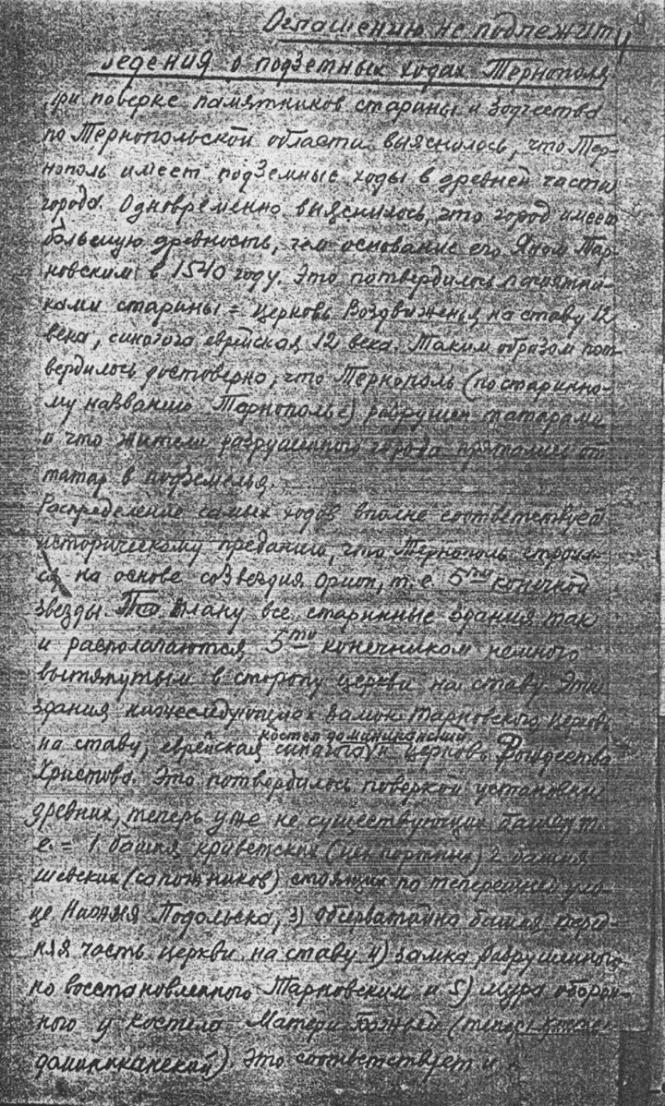 Оглашению не подлежит
ведения о подземных ходах Тернополя
при поверке памятников старины и зодчества
по Тернопольской области выяснилось, что Тер-
нополь имеет подземные ходы в древней части
города. Одновременно выяснилось, что город имеет
большую древность, чем основание его Яном Тар-
новским в 1540 году. Это потвердилось памятни-
ками старины = церковь Воздвиженья на ставу 12
века, синагога еврейская 12 века. Таким образом пот-
вердилось достоверно, что Тернополь (по старинно-
му названию Тернополье) разрушен татарами
и что жители разрушенного города прятались от
татар в подземелья.
Распределение самих ходов вполне соответствует
историческому преданию, что Тернополь строил-
ся на основе созвездия орион, т.е. 5ти конечной
звезды. По плану все старинные здания так
и располагаются 5ти конечником немного
вытянутым в сторону церкви на ставу. Эти
здания нижеследующие: замок Тарновского церковь
на ставу, еврейская синагога,
костел доминиканский
и церковь Рождества
Христова. Это потвердилось поверкой установки
древних, теперь уже не существующих башен т.
е. = 1. башня кравецкая 2 башня
шевская (сапожников) стоящих по теперешней ули-
це Подольска, 3) башня перед-
няя часть церкви на ставу 4) замка разрушенного
но восстановленного Тарновским и 5) мура оборон-
ного у костела Матери Божьей (теперь
доминиканский). Это соответствует и